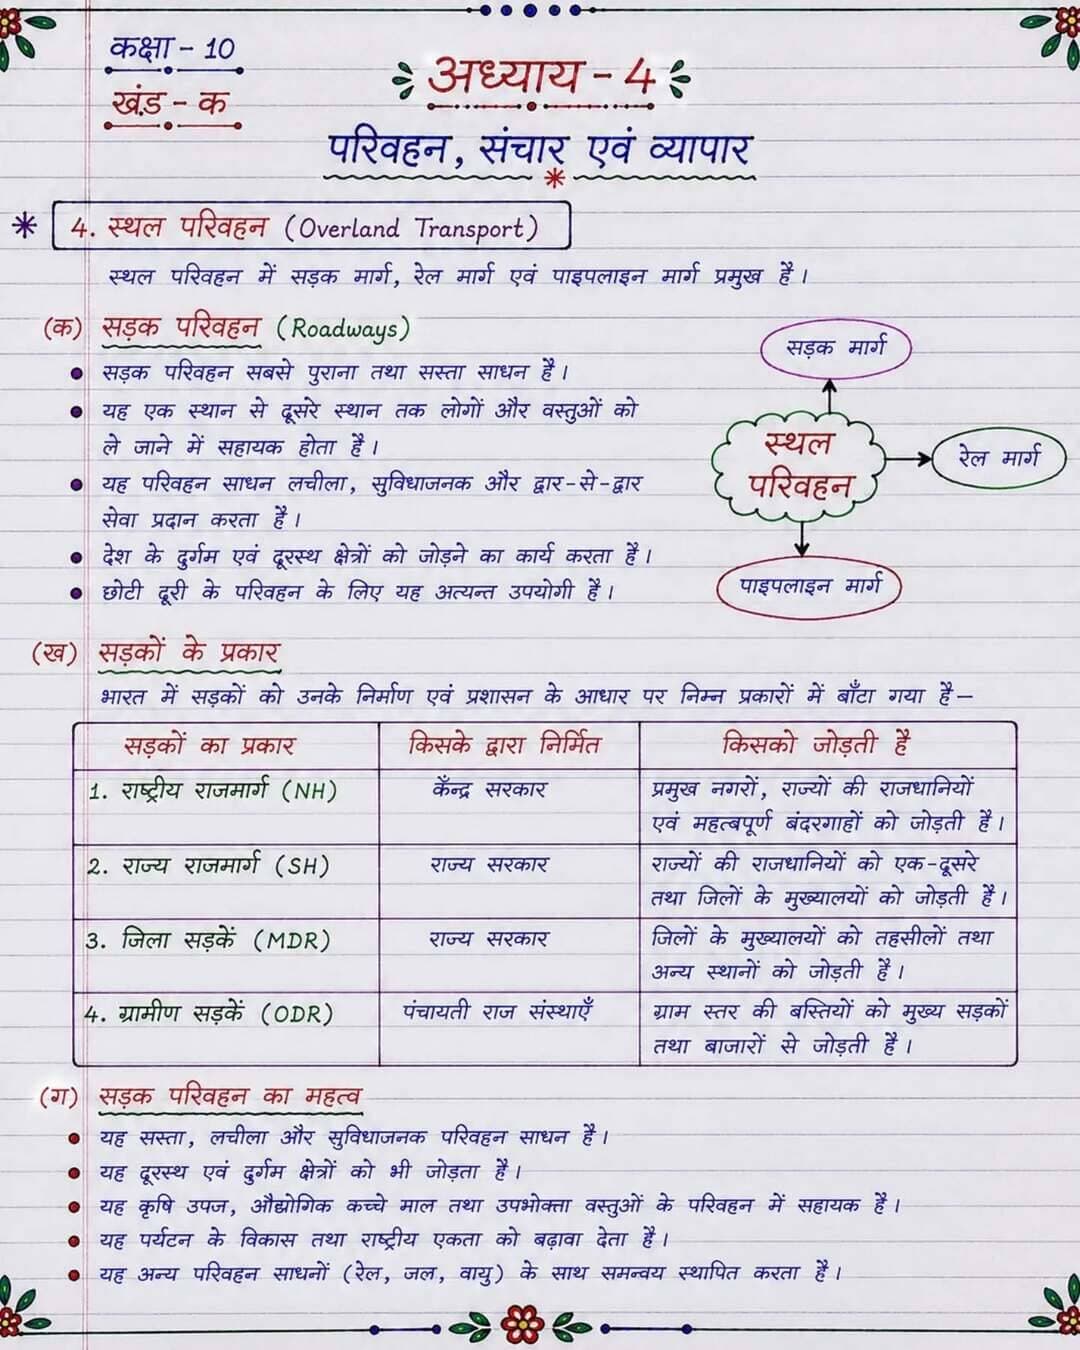 कक्षा - 10
खंड - क
अध्याय - 4
परिवहन, संचार एवं व्यापार
4. स्थल परिवहन (Overland Transport)
स्थल परिवहन में सड़क मार्ग, रेल मार्ग एवं पाइपलाइन मार्ग प्रमुख है।
(क) सड़क परिवहन (Roadways)
सड़क परिवहन सबसे पुराना तथा सस्ता साधन है।
यह एक स्थान से दूसरे स्थान तक लोगों और वस्तुओं को
ले जाने में सहायक होता है।
यह परिवहन साधन लचीला, सुविधाजनक और द्वार-से-द्वार
सेवा प्रदान करता है।
देश के दुर्गम एवं दूरस्थ क्षेत्रों को जोड़ने का कार्य करता है।
छोटी दूरी के परिवहन के लिए यह अत्यन्त उपयोगी है।
सड़क मार्ग
स्थल
परिवहन
रेल मार्ग
पाइपलाइन मार्ग
(ख) सड़कों के प्रकार
भारत में सड़कों को उनके निर्माण एवं प्रशासन के आधार पर निम्न प्रकारों में बाँटा गया है—
सड़कों का प्रकार किसके द्वारा निर्मित किसको जोड़ती है
1. राष्ट्रीय राजमार्ग (NH) केँन्द्र सरकार प्रमुख नगरों, राज्यों की राजधानियों
एवं महत्बपूर्ण बंदरगाहों को जोड़ती है।
2. राज्य राजमार्ग (SH) राज्य सरकार राज्यों की राजधानियों को एक-दूसरे
तथा जिलों के मुख्यालयों को जोड़ती है।
3. जिला सड़कें (MDR) राज्य सरकार जिलों के मुख्यालयों को तहसीलों तथा
अन्य स्थानों को जोड़ती है।
4. ग्रामीण सड़कें (ODR) पंचायती राज संस्थाएँ ग्राम स्तर की बस्तियों को मुख्य सड़कों
तथा बाजारों से जोड़ती है।
(ग) सड़क परिवहन का महत्व
यह सस्ता, लचीला और सुविधाजनक परिवहन साधन है।
यह दूरस्थ एवं दुर्गम क्षेत्रों को भी जोड़ता है।
यह कृषि उपज, औद्योगिक कच्चे माल तथा उपभोक्ता वस्तुओं के परिवहन में सहायक है।
यह पर्यटन के विकास तथा राष्ट्रीय एकता को बढ़ावा देता है।
यह अन्य परिवहन साधनों (रेल, जल, वायु) के साथ समन्वय स्थापित करता है।